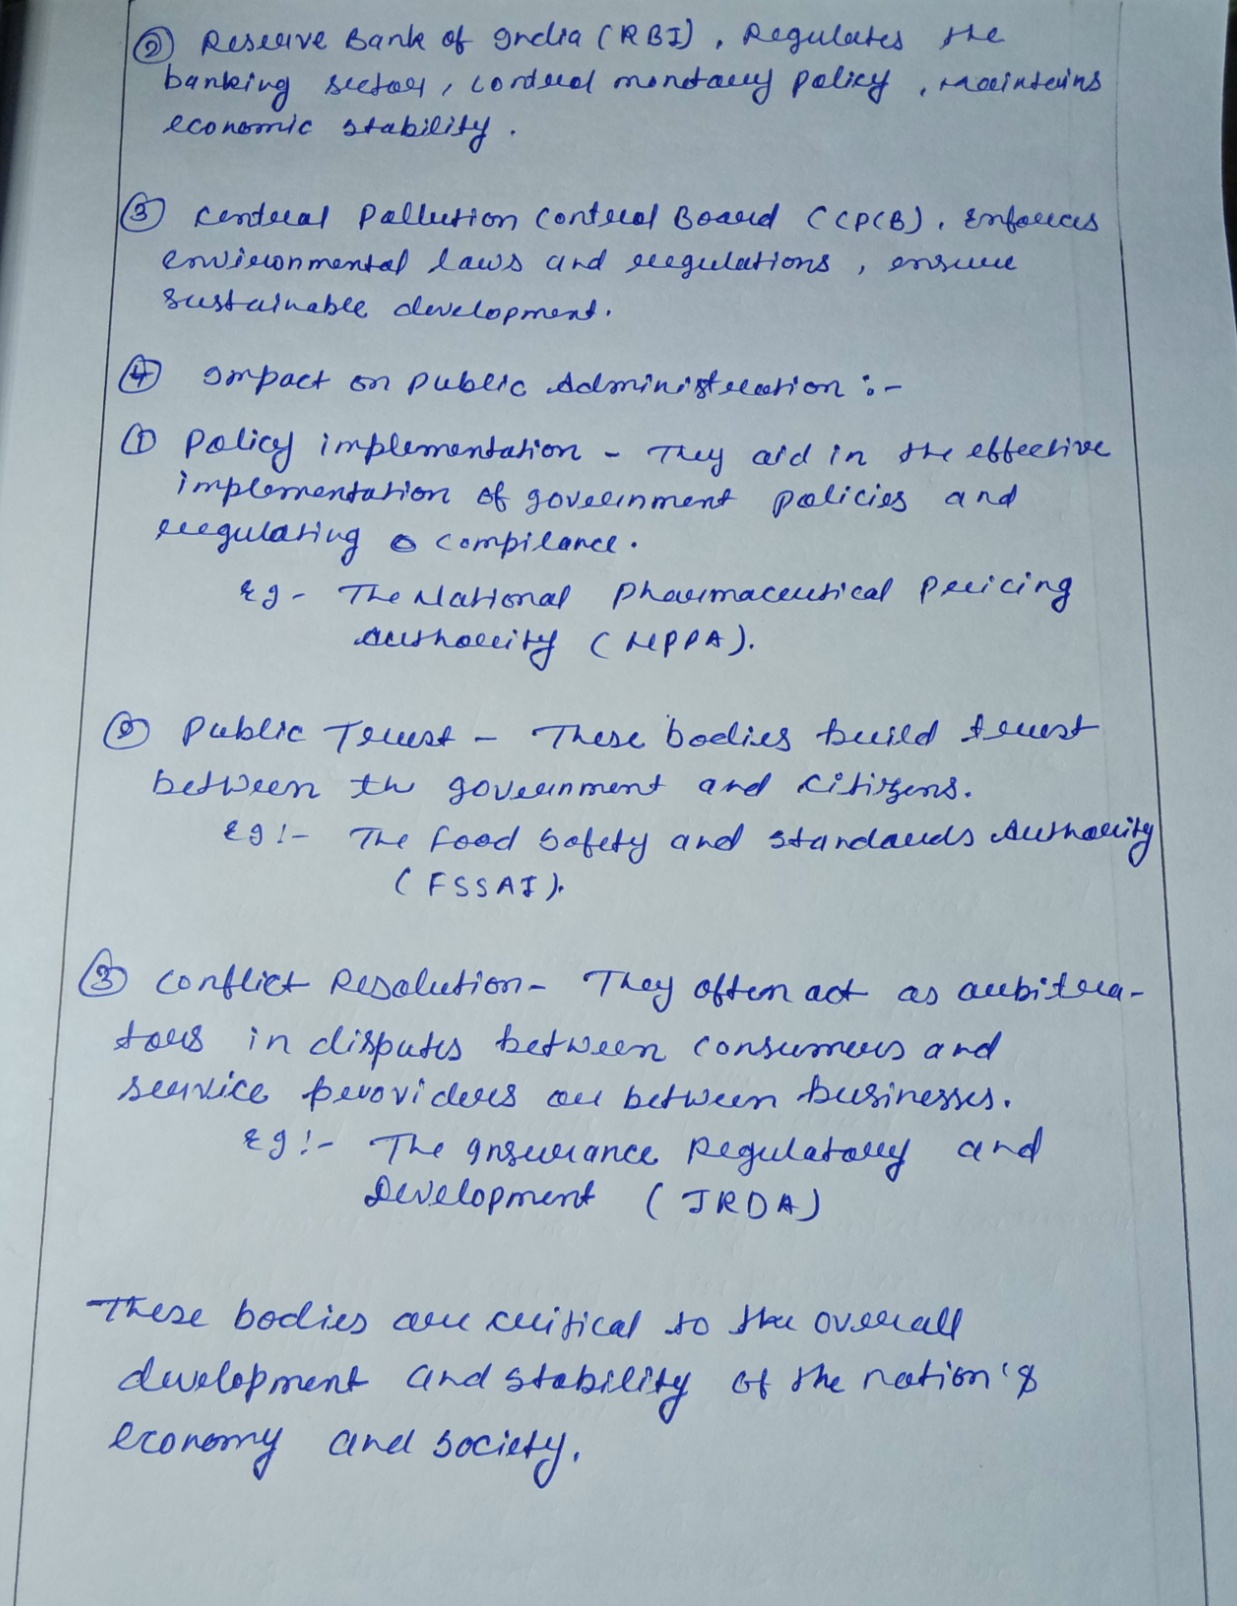 ② Reserve Bank of India (RBI), Regulates the
banking sector, control monetary policy, maintains
economic stability.
③ Central Pollution Control Board (CPCB). Enforces
environmental laws and regulations, ensure
sustainable development.
④ Impact on Public Administration :-
① Policy implementation - They aid in the effective
implementation of government policies and
regulating compilance.
Eg - The National Pharmaceutical Pricing
Authority (NPPA).
② Public Trust - These bodies build trust
between the government and citizens.
Eg :- The Food Safety and Standards Authority
(FSSAI).
③ Conflict Resolution - They often act as arbitra-
tors in disputes between consumers and
service providers or between businesses.
Eg :- The Insurance Regulatory and
Development (IRDA)
These bodies are critical to the overall
development and stability of the nation's
economy and society.